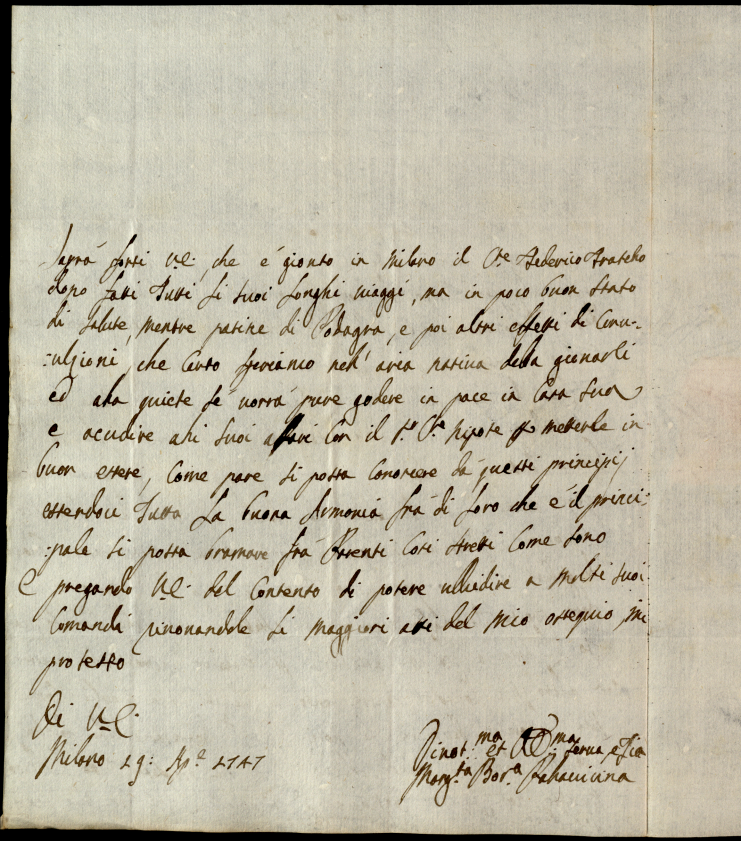 Saprà forsi V.E., che è gionto in Milano il C.te Federico Fratello
dopo fatti Tutti li suoi longhi viaggi, ma in poco buon stato
di salute, mentre patine di Podagra, e poi altri effetti di Conv-
:ulsioni, che certo speriamo nell' aria nativa della giovarli
ed alla quiete se vorrà pure godere in pace in Casa Sua
e acudire alli suoi affari con il C.te Nipote p metterle in
buon essere, come pare si possa conosiere da questi principij
essendoci Tutta la buona Armonia frà di loro che è il princi:
:pale si possa bramare frà Parenti così stretti come sono
e pregando V.E. del contento di potere ubidire a molti suoi
Comandi rinonandole li maggiori atti del mio ossequio mi
protesto
Di V.E.
Milano 29: 1747
Divot.ma et Ob.ma serva e Zia
Marg.ta Bor.a Pallavicina